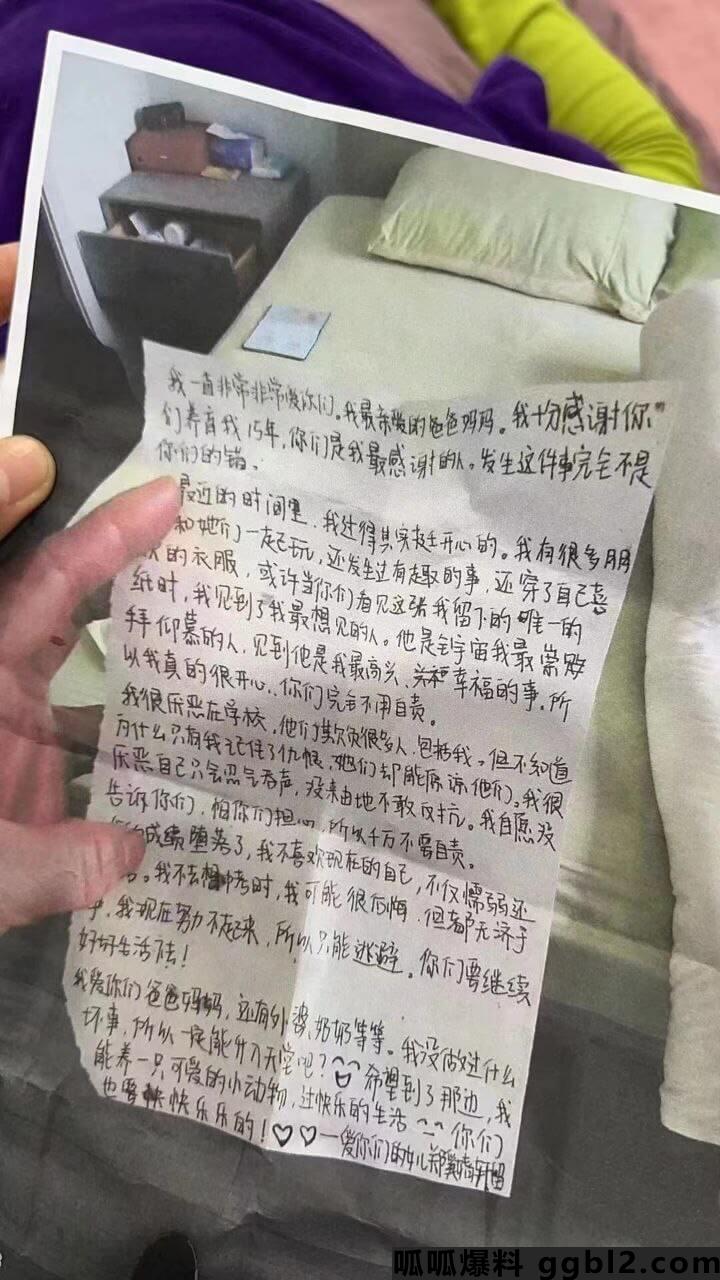 我一直非常非常爱你们。我最亲爱的爸爸妈妈。我十分感谢你
们养育我15年,你们是我最感谢的人。发生这件事完全不是
你们的错。
最近的时间里,我过得其实挺开心的。我有很多朋
和她们一起玩,还发生过有趣的事,还穿了自己喜
的衣服,或许当你们看见这张我留下的唯一的
纸时,我见到了我最想见的人。他是全宇宙我最崇
拜仰慕的人,见到他是我最高兴、幸福的事,所
以我真的很开心,你们完全不用自责。
我很厌恶在学校,他们欺负很多人,包括我。但不知道
为什么只有我记住了仇恨,她们却能原谅他们。我很
厌恶自己只会忍气吞声,没来由地不敢反抗。我自愿没
告诉你们,怕你们担心,所以千万不要自责。
成绩堕落了,我不喜欢现在的自己,不仅懦弱还
。我不去想中考时,我可能很后悔,但都无济于
事,我现在努力不起来,所以只能逃避。你们要继续
好好生活下去!
我爱你们爸爸妈妈,还有外婆、奶奶等等。我没做过什么
坏事,所以一定能升入天堂吧?希望到了那边,我
能养一只可爱的小动物,过快乐的生活 你们
也要快快乐乐的!♡♡——爱你们的女儿郑
呱呱爆料 ggbl2.com